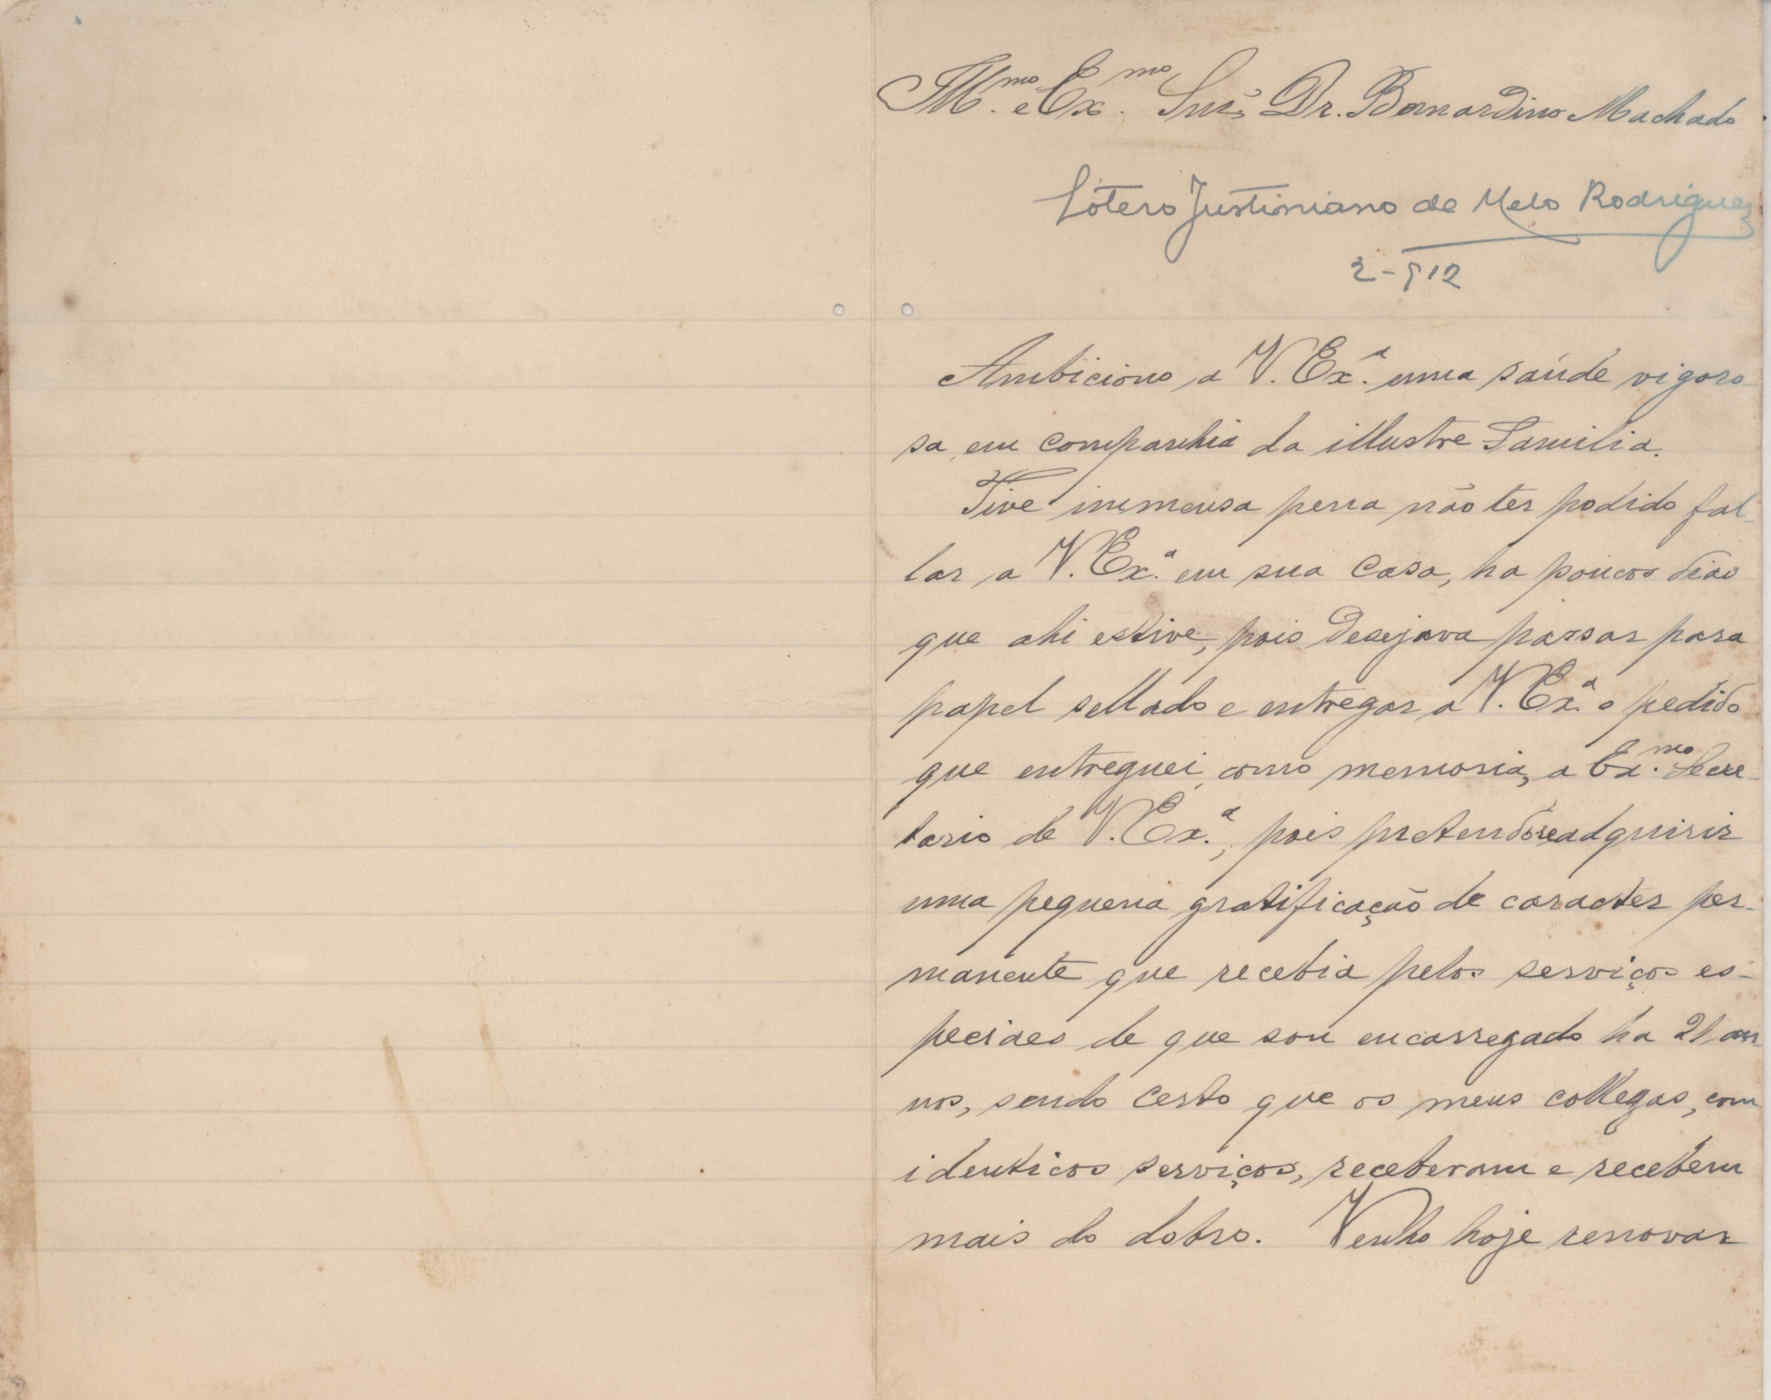 Ill.mo e Ex.mo Snr. Dr. Bernardino Machado
Sotero Justiniano de Melo Rodrigues
2-912
Ambiciono a V. Ex.ª uma saúde vigoro-
sa em companhia da illustre Familia.
Tive immensa pena não ter podido fal-
lar a V. Ex.ª em sua casa, ha poucos dias
que ahi estive, pois desejava passar para
papel sellado e entregar a V. Ex.ª o pedido
que entreguei, como memoria, a Ex.mo Secre-
tario de V. Ex.ª, pois pretendo readquirir
uma pequena gratificação de caracter per-
manente que recebia pelos serviços es-
peciaes de que sou encarregado ha 21 an-
nos, sendo certo que os meus collegas, com
identicos serviços, receberam e recebem
mais do dobro. Venho hoje renovar